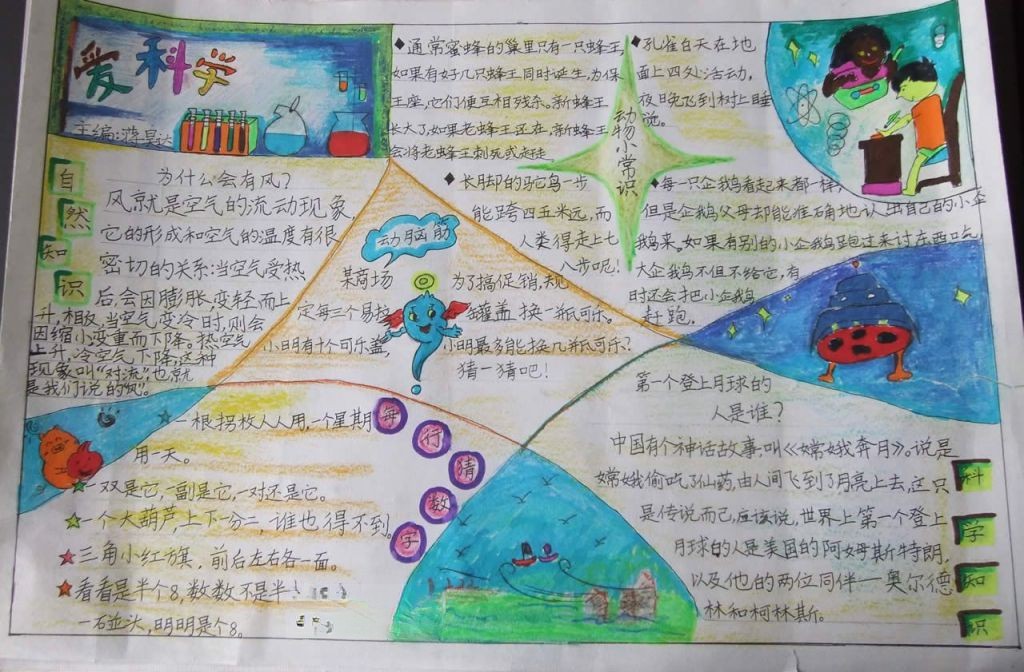 爱科学
主编:蒋昊达
自然知识
为什么会有风?
风就是空气的流动现象,
它的形成和空气的温度有很
密切的关系:当空气受热
后,会因膨胀、变轻而上
升,相反,当空气变冷时,则会
因缩小变重而下降。热空气
上升,冷空气下降,这种
现象叫“对流”也就
是我们说的风”。
动物小常识
◆通常蜜蜂的巢里只有一只蜂王,
如果有好几只蜂王同时诞生,为保
王座,它们便互相残杀。新蜂王
长大了,如果老蜂王还在,新蜂王
会将老蜂王刺死或赶走
◆孔雀白天在地
面上四处活动,
夜晚飞到树上睡
觉。
◆长脚的鸵鸟一步
能跨四五米远,而
人类得走上七
八步呢!
◆每一只企鹅看起来都一样,
但是企鹅父母却能准确地认出自己的小企
鹅来。如果有别的小企鹅跑过来讨东西吃
大企鹅不但不给它,有
时还会把小企鹅
赶跑.
动脑筋
某商场为了搞促销,规
定每三个易拉罐盖换一瓶可乐。
小明有十个可乐盖,小明最多能换几瓶可乐?
猜一猜吧!
每行猜数字
一根拐杖人人用,一个星期
用一天。
一双是它,一副是它,一对还是它。
一个大葫芦,上下一分二,谁也得不到。
三角小红旗,前后左右各一面。
看看是半个8,数数不是半
一碰头,明明是个8。
第一个登上月球的
人是谁?
中国有个神话故事:叫《嫦娥奔月》。说是
嫦娥偷吃了仙药,由人间飞到了月亮上去,这只
是传说而已,应该说,世界上第一个登上
月球的人是美国的阿姆斯特朗,
以及他的两位同伴——奥尔德
林和柯林斯。
科学知识